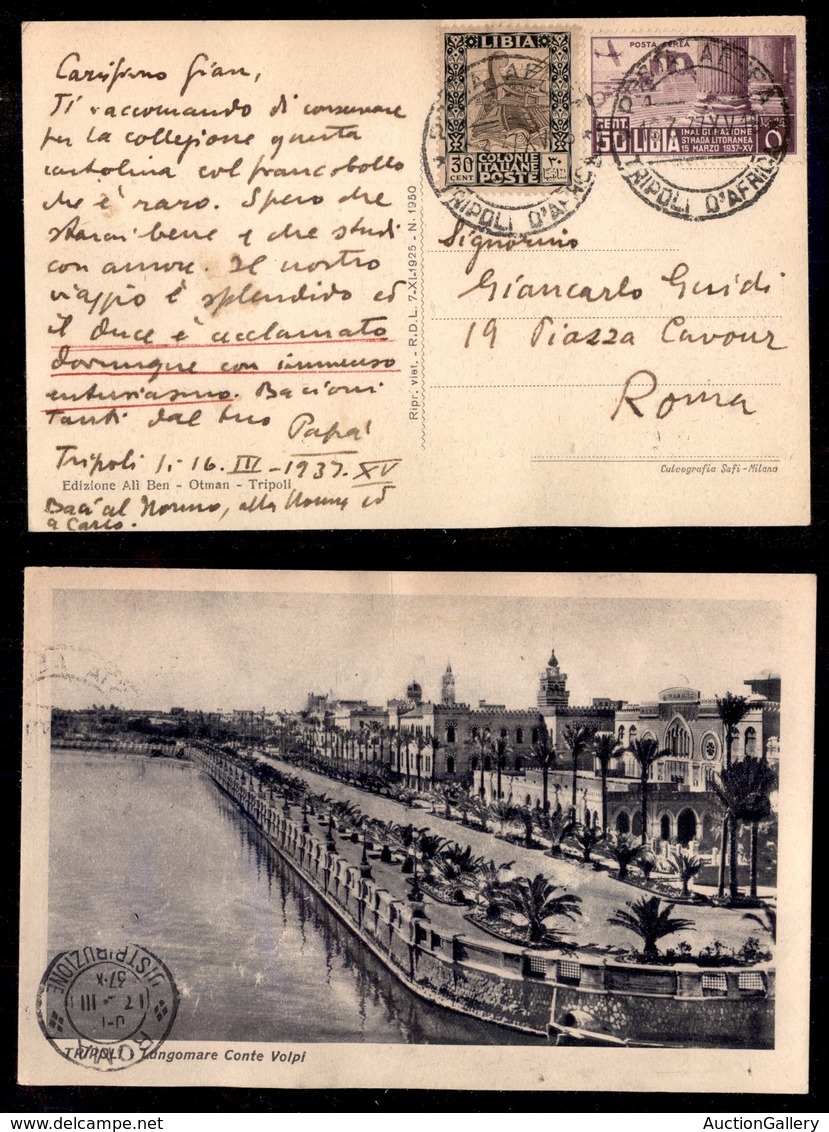 Carissimo Gian,
Ti raccomando di conservare
per la collezione questa
cartolina col francobollo
che è raro. Spero che
starai bene e che studi
con amore. Il nostro
viaggio è splendido ed
il duce è acclamato
dovunque con immenso
entusiasmo. Bacioni
tanti dal tuo
Papà
Tripoli li 16. III - 1937. XV
Edizione Alì Ben - Otman - Tripoli
Baci al Nonno, alla Nonna ed
a Carlo.
Ripr. viet. - R.D.L. 7-XI-1925 - N. 1950
LIBIA
30
CENT
COLONIE
ITALIANE
POSTE
٣٠
POSTA AEREA
CENT
50 LIBIA
INAUGURAZIONE
STRADA LITORANEA
15 MARZO 1937-XV
TRIPOLI D'AFRICA
TRIPOLI D'AFRICA
Signorino
Giancarlo Guidi
19 Piazza Cavour
Roma
Calcografia Safi - Milano
ROMA
DISTRIBUZIONE
17 - III
37·X
TRIPOLI - Lungomare Conte Volpi
AuctionGallery